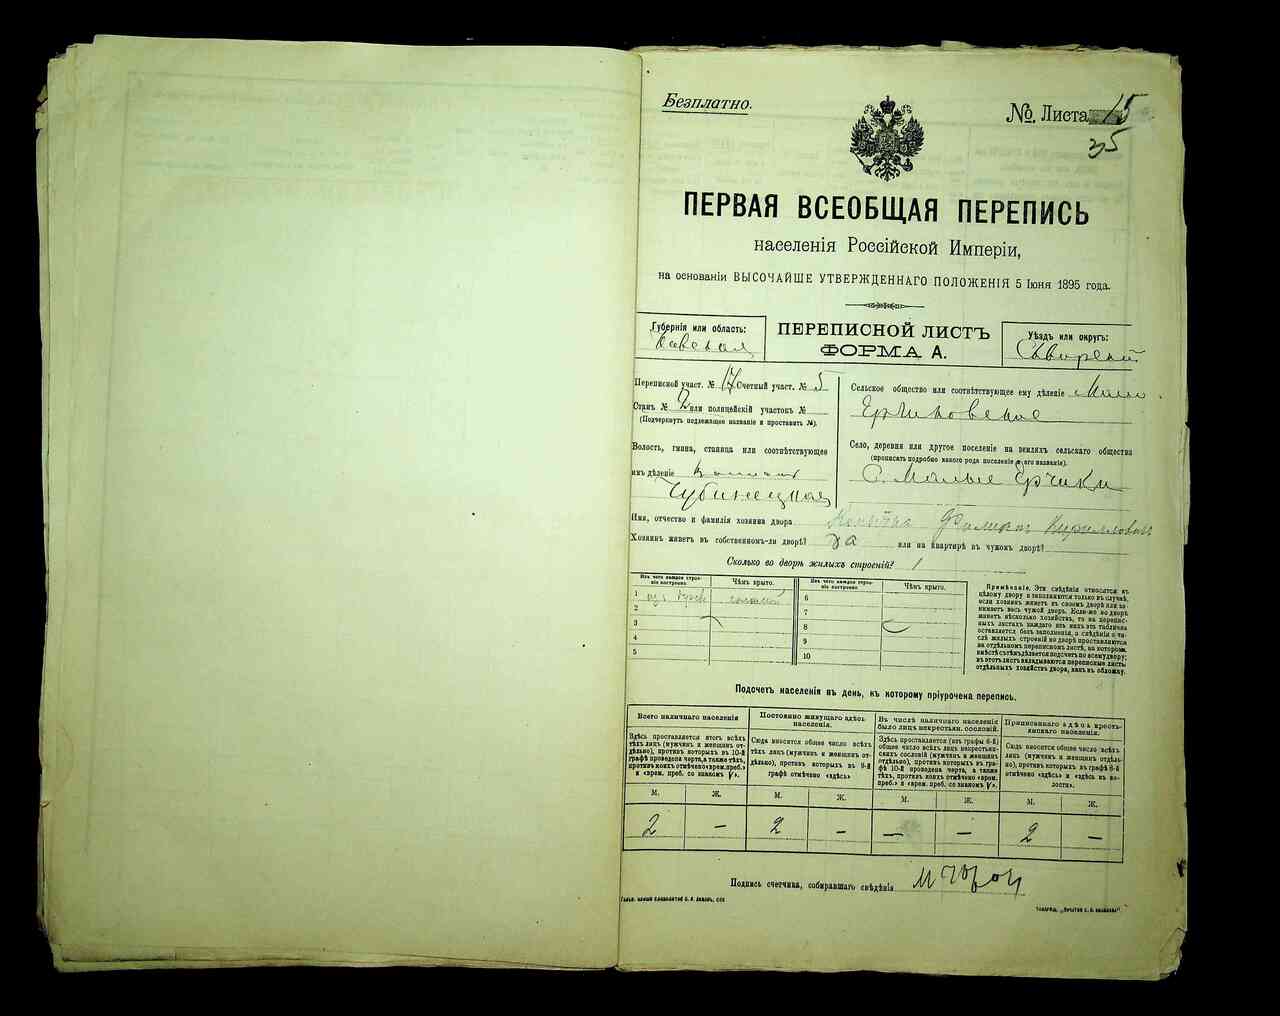 Безплатно.
№. Листа 15
35
ПЕРВАЯ ВСЕОБЩАЯ ПЕРЕПИСЬ
населенія Россійской Имперіи,
на основаніи ВЫСОЧАЙШЕ УТВЕРЖДЕННАГО ПОЛОЖЕНІЯ 5 Іюня 1895 года.
Губернія или область:
Кіевская
ПЕРЕПИСНОЙ ЛИСТЪ
ФОРМА А.
Уѣздъ или округъ:
Сквирскій
Переписной участ. № 17 Счетный участ. № 5
Станъ № 2 или полицейскій участокъ №
(Подчеркнуть подлежащее названіе и проставить №).
Волость, гмина, станица или соотвѣтствующее
имъ дѣленіе волость
Чубинецкая
Сельское общество или соотвѣтствующее ему дѣленіе Мало
Ерчиковское
Село, деревня или другое поселеніе на земляхъ сельскаго общества
(прописать подробно какого рода поселеніе и его названіе).
С. Малые Ерчики
Имя, отчество и фамилія хозяина двора Кирилловъ
Хозяинъ живетъ въ собственномъ-ли дворѣ? да или на квартирѣ въ чужомъ дворѣ?
Сколько во дворѣ жилыхъ строеній? 1
Изъ чего каждое строеніе построено. Чѣмъ крыто. Изъ чего каждое строеніе построено. Чѣмъ крыто.
1 изъ соломой 6
2 7
3 8
4 9
5 10
Примѣчаніе. Эти свѣдѣнія относятся къ
цѣлому двору и заполняются только въ случаѣ,
если хозяинъ живетъ въ своемъ дворѣ или занимаетъ
весь чужой дворъ. Если-же во дворѣ
живетъ нѣсколько хозяйствъ, то на переписныхъ
листахъ каждаго изъ нихъ эта табличка
оставляется безъ заполненія, а свѣдѣнія о числѣ
жилыхъ строеній во дворѣ проставляются
на отдѣльномъ переписномъ листѣ, на которомъ
вмѣстѣ съ тѣмъ дѣлается подсчетъ по всему двору;
въ этотъ листъ вкладываются переписные листы
отдѣльныхъ хозяйствъ двора, какъ въ обложку.
Подсчетъ населенія въ день, къ которому пріурочена перепись.
Всего наличнаго населенія
Постоянно живущаго здѣсь населенія.
Въ числѣ наличнаго населенія было лицъ некрестьян. сословій.
Приписаннаго здѣсь крестьянскаго населенія.
Здѣсь проставляется итогъ всѣхъ тѣхъ лицъ (мужчинъ и женщинъ отдѣльно), противъ которыхъ въ 10-й графѣ проведена черта, а также тѣхъ, противъ коихъ отмѣчено «врем. преб.» и «врем. преб. со знакомъ V».
Сюда вносится общее число всѣхъ тѣхъ лицъ (мужчинъ и женщинъ отдѣльно), противъ которыхъ въ 9-й графѣ отмѣчено «здѣсь»
Здѣсь проставляется (изъ графы 6-й) общее число всѣхъ лицъ некрестьянскихъ сословій (мужчинъ и женщинъ отдѣльно), противъ которыхъ въ графѣ 10 проведена черта, а также тѣхъ, противъ коихъ отмѣчено «врем. преб.» и «врем. преб. со знакомъ V».
Сюда вносится общее число всѣхъ лицъ (мужчинъ и женщинъ отдѣльно), противъ которыхъ въ графѣ 8-й отмѣчено «здѣсь» и «здѣсь въ волости».
М. Ж. М. Ж. М. Ж. М. Ж.
2 — 2 — — — 2 —
Подпись счетчика, собиравшаго свѣдѣнія